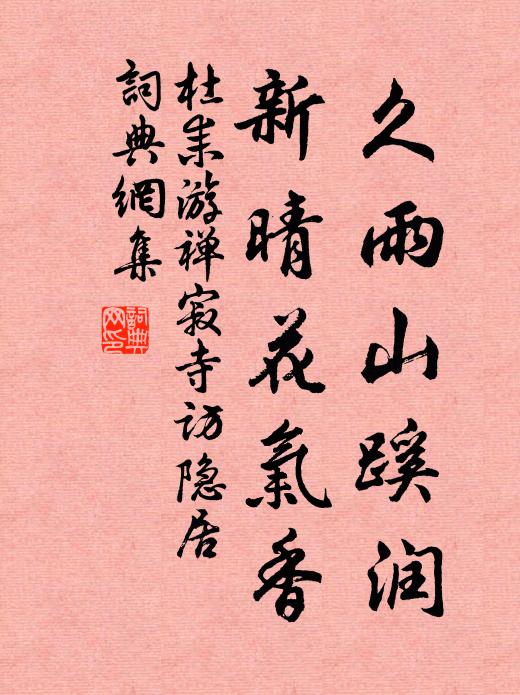 久雨山蹊润
新晴花氣香
杜耒游禅寂寺访隐居
詞典網集
詞典
网印